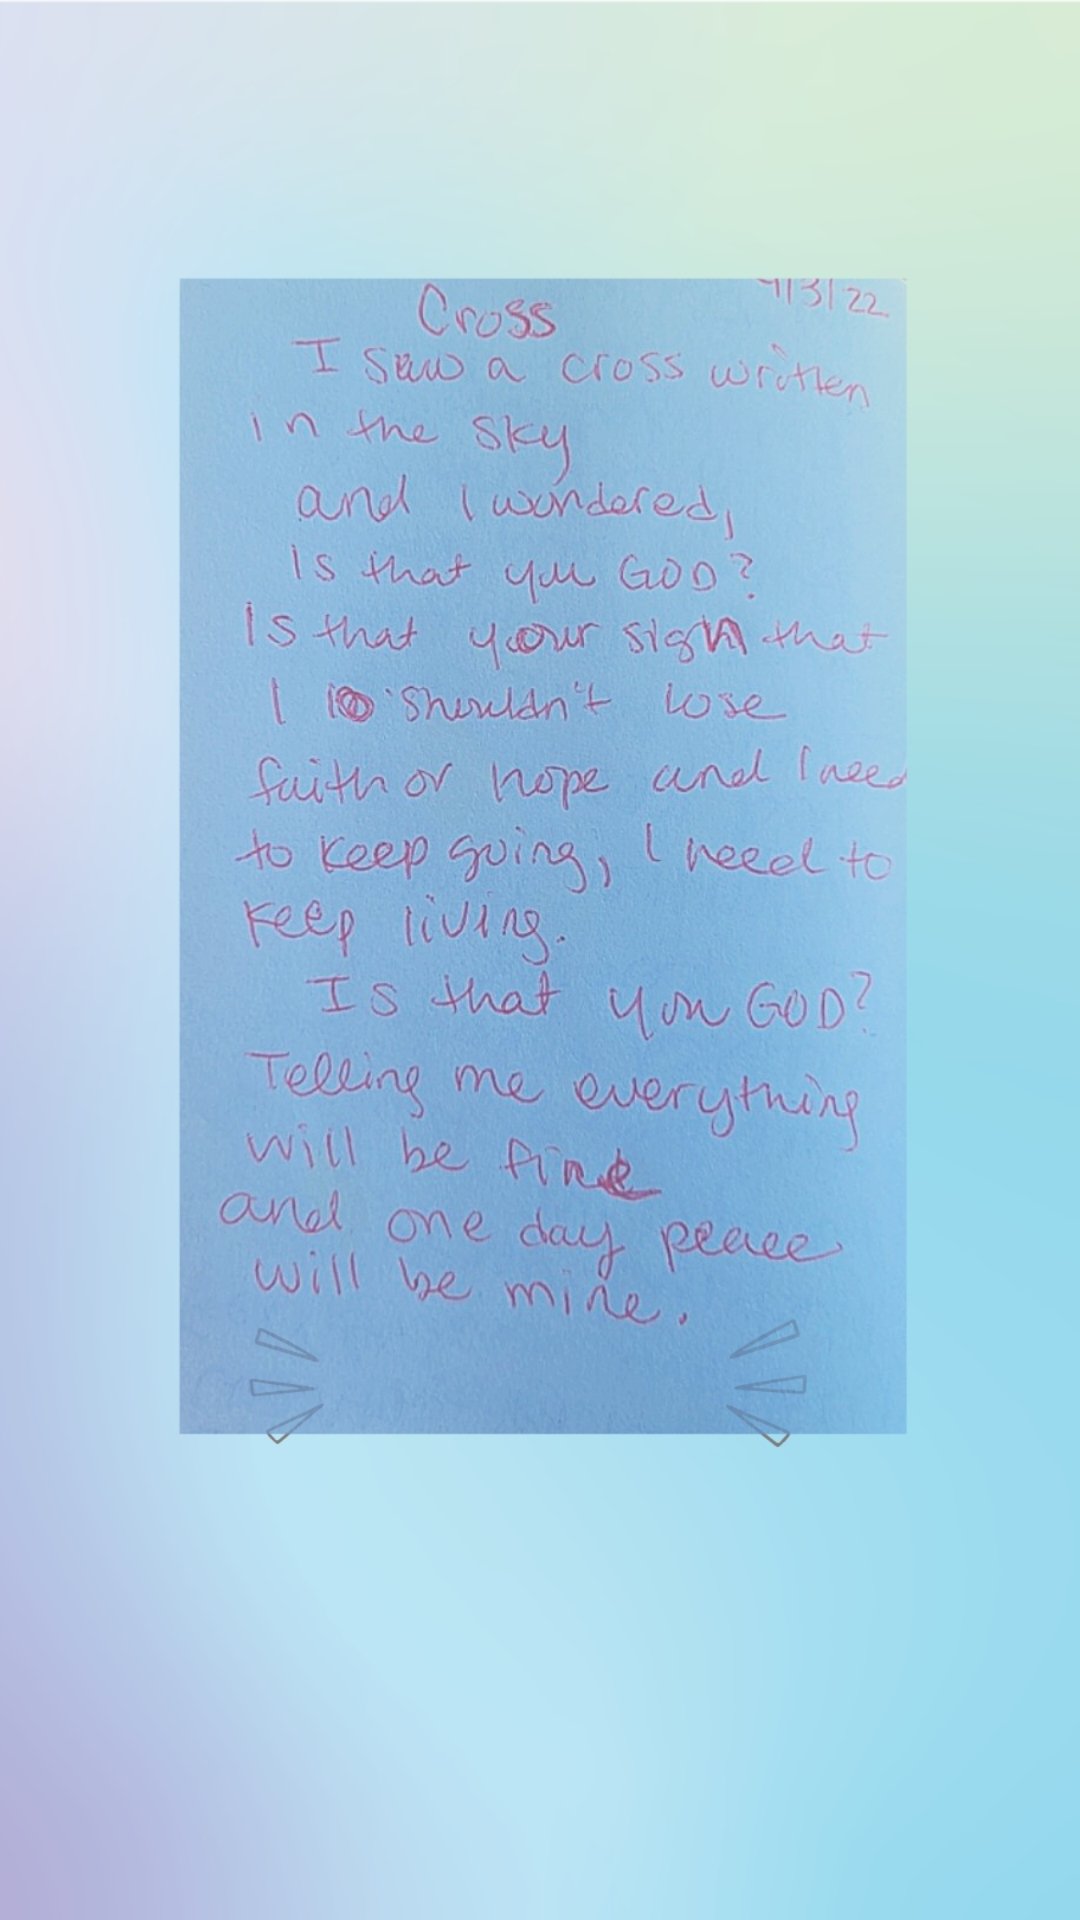 Cross
I saw a cross written
in the sky
and I wondered,
Is that you GOD?
Is that your sign that
I shouldn't lose
faith or hope and I need
to keep going, I need to
keep living.
Is that you GOD?
Telling me everything
will be fine
and one day peace
will be mine.